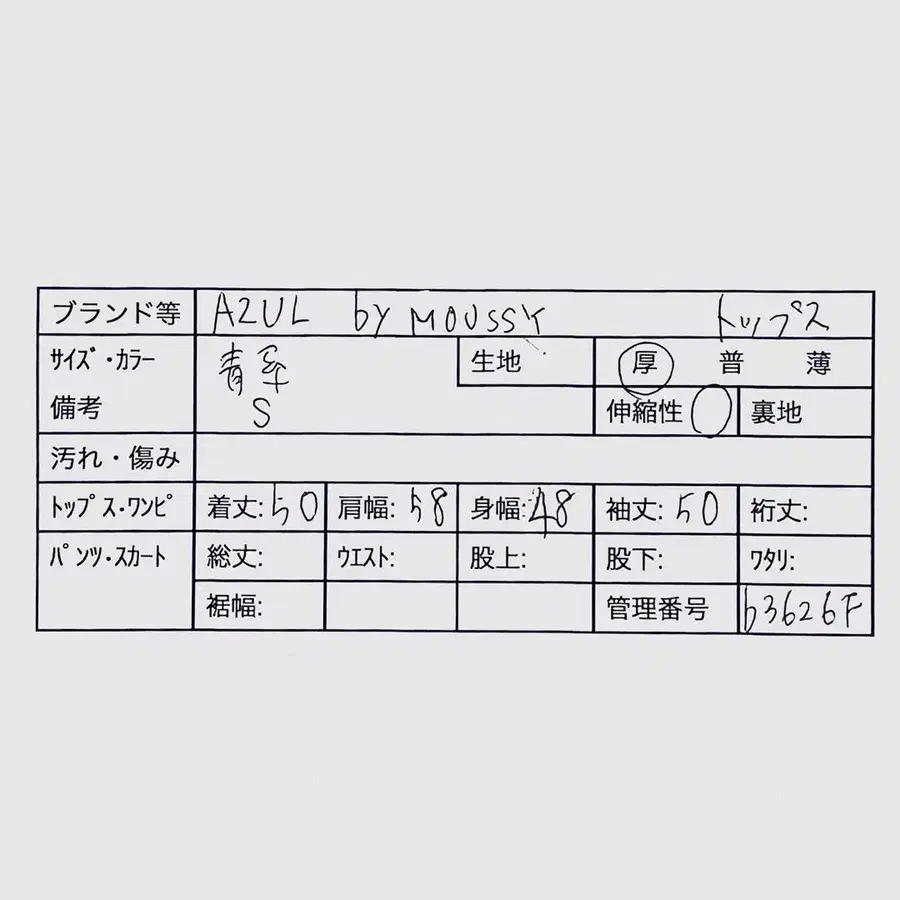 ブランド等 AZUL by MOUSSY トップス
サイズ・カラー 青系 生地 厚 普 薄
備考 S 伸縮性 ○ 裏地
汚れ・傷み
トップス・ワンピ 着丈:50 肩幅:58 身幅:48 袖丈:50 裄丈:
パンツ・スカート 総丈: ウエスト: 股上: 股下: ワタリ:
裾幅: 管理番号 b3626F